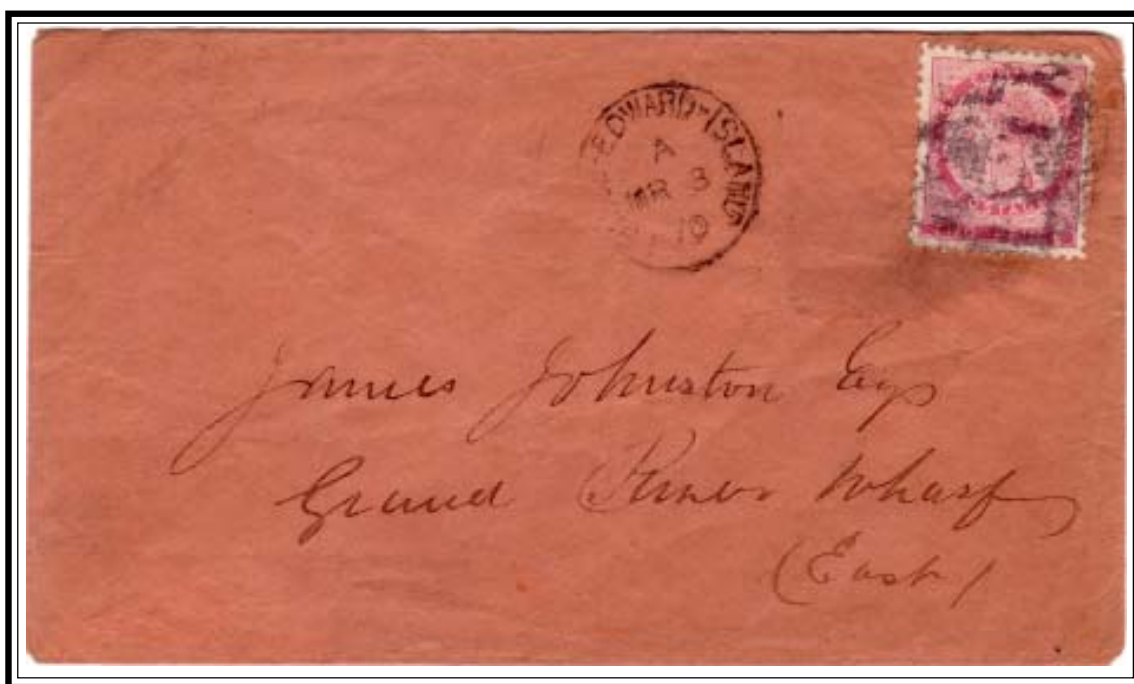 EDWARD-ISLAND
A
MR 3
James Johnston Esq
Grand River Wharf
(East)